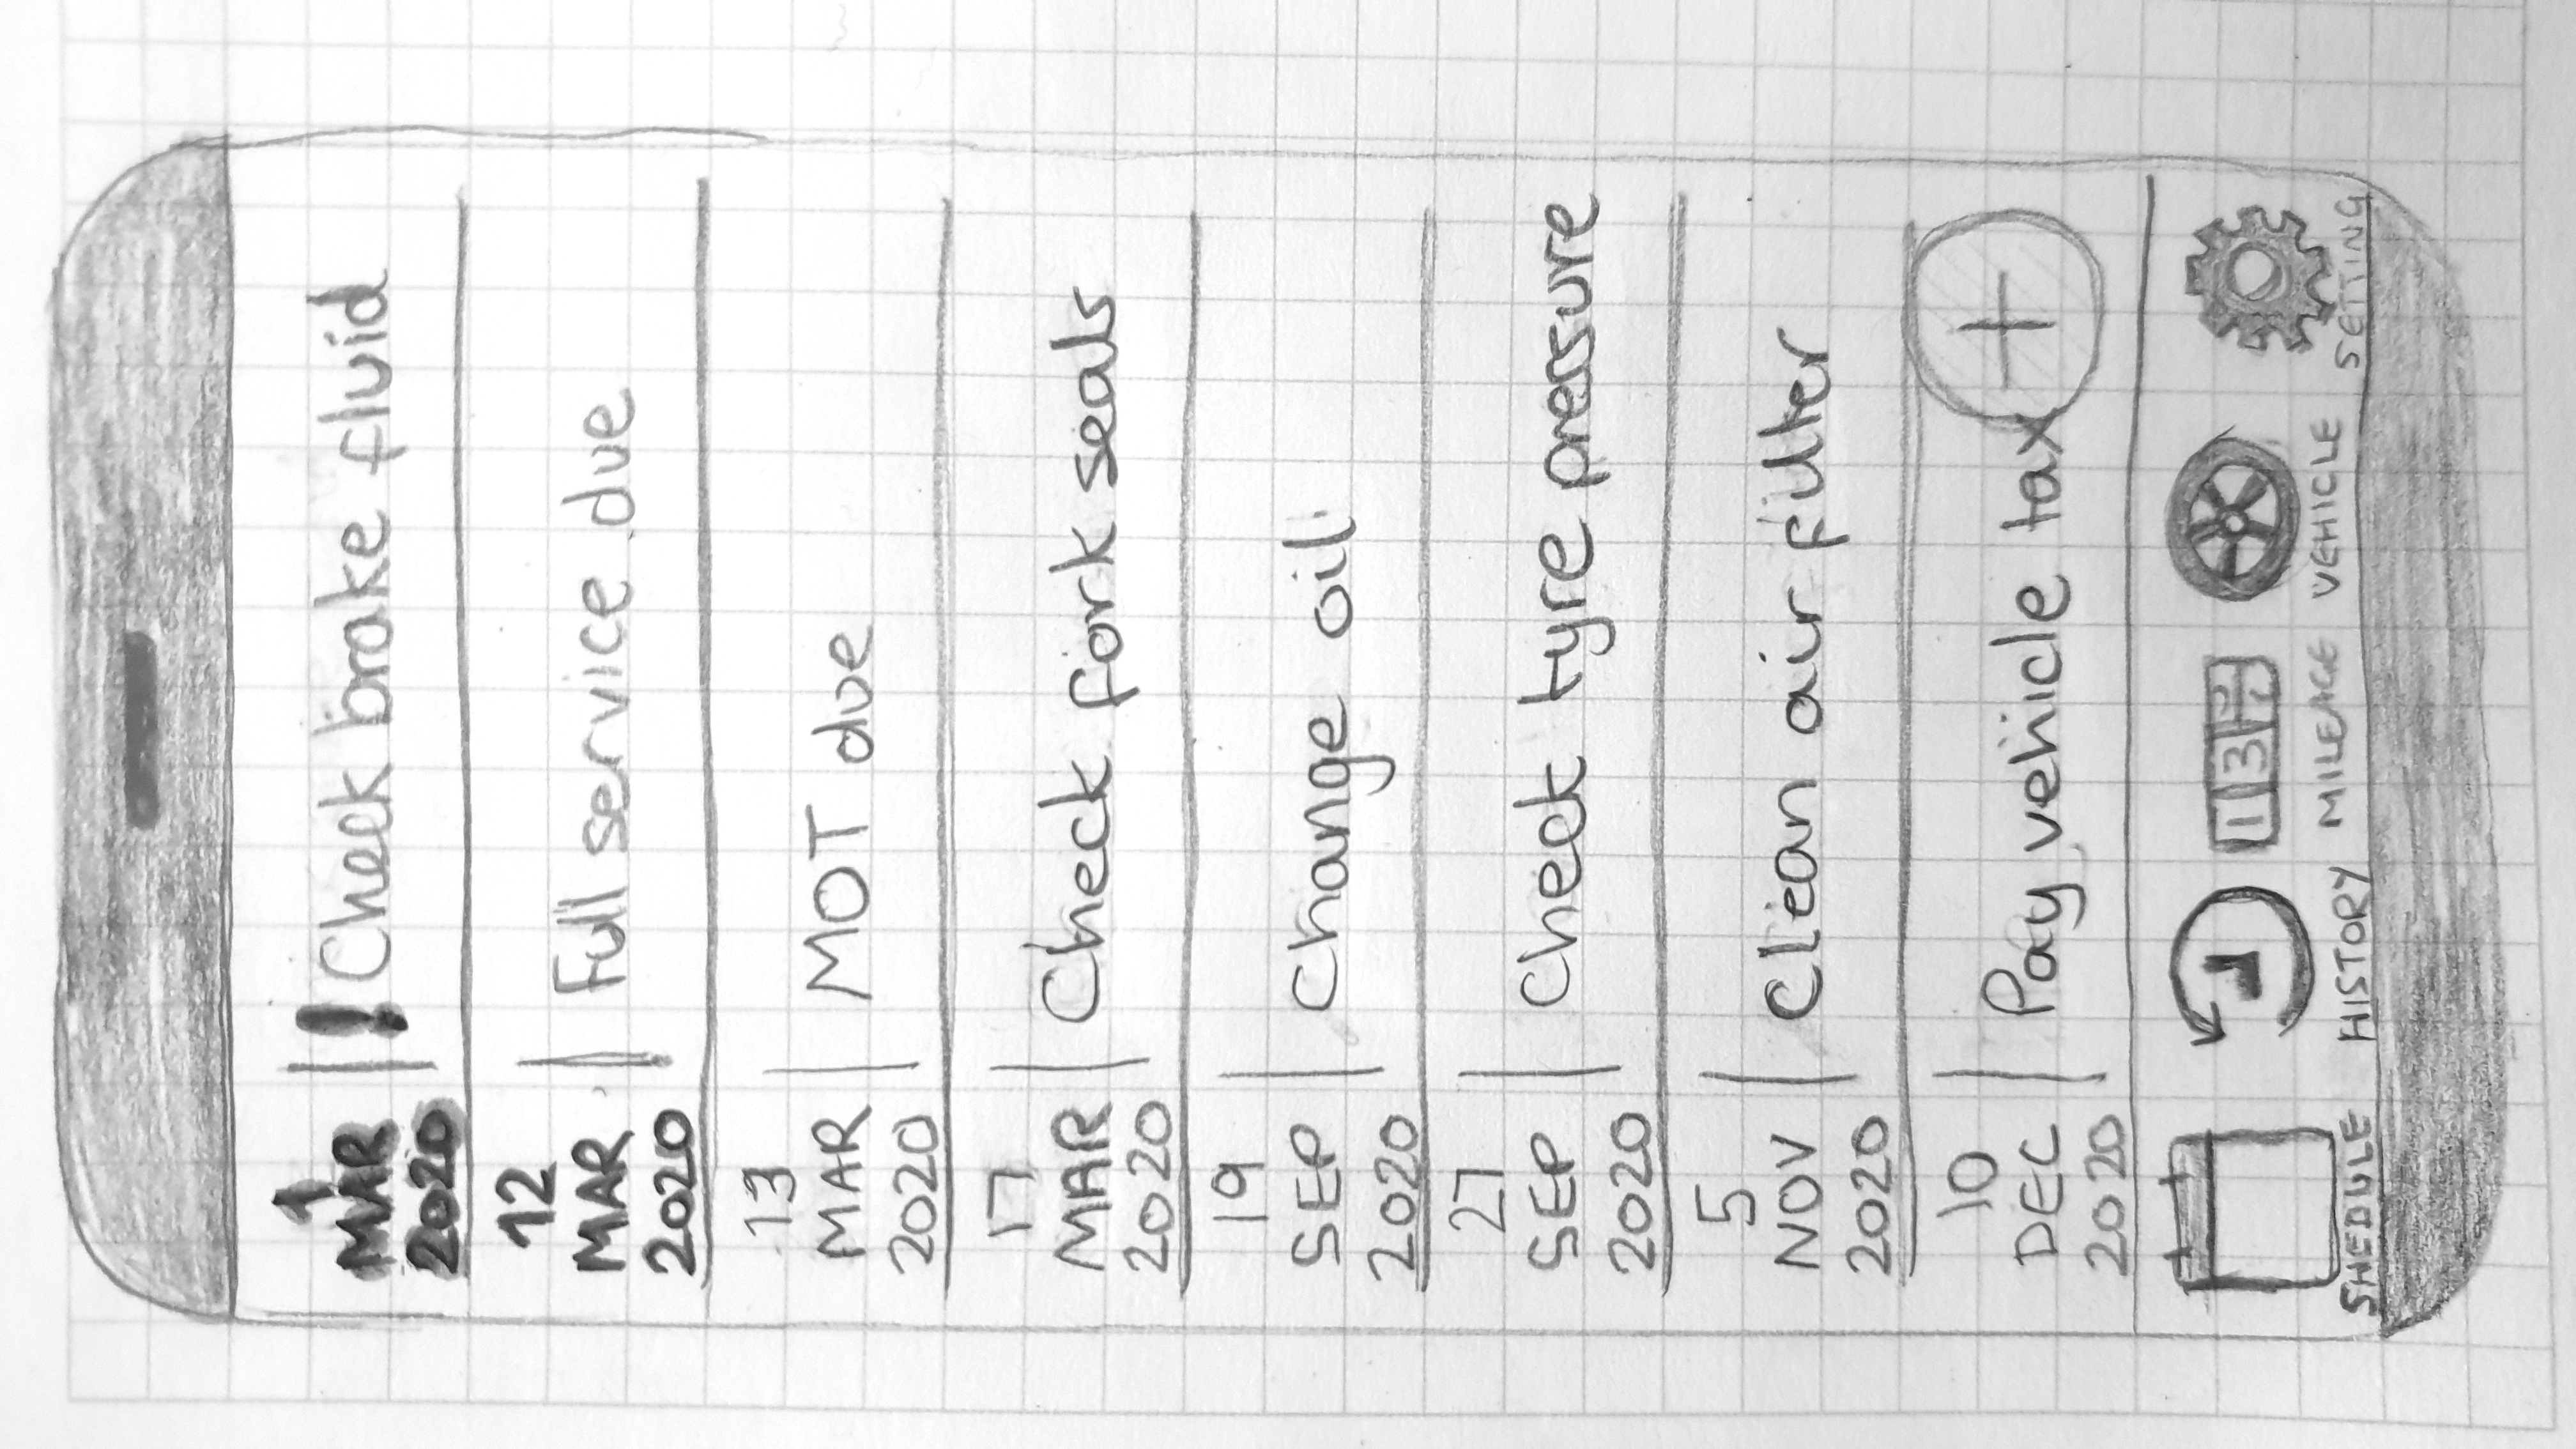 1
MAR
2020
! Check brake fluid
12
MAR
2020
Full service due
13
MAR
2020
MOT due
17
MAR
2020
Check fork seals
19
SEP
2020
Change oil
27
SEP
2020
Check tyre pressure
5
NOV
2020
Clean air filter
10
DEC
2020
Pay vehicle tax
+
13
SHEDULE
HISTORY
MILEAGE
VEHICLE
SETTING